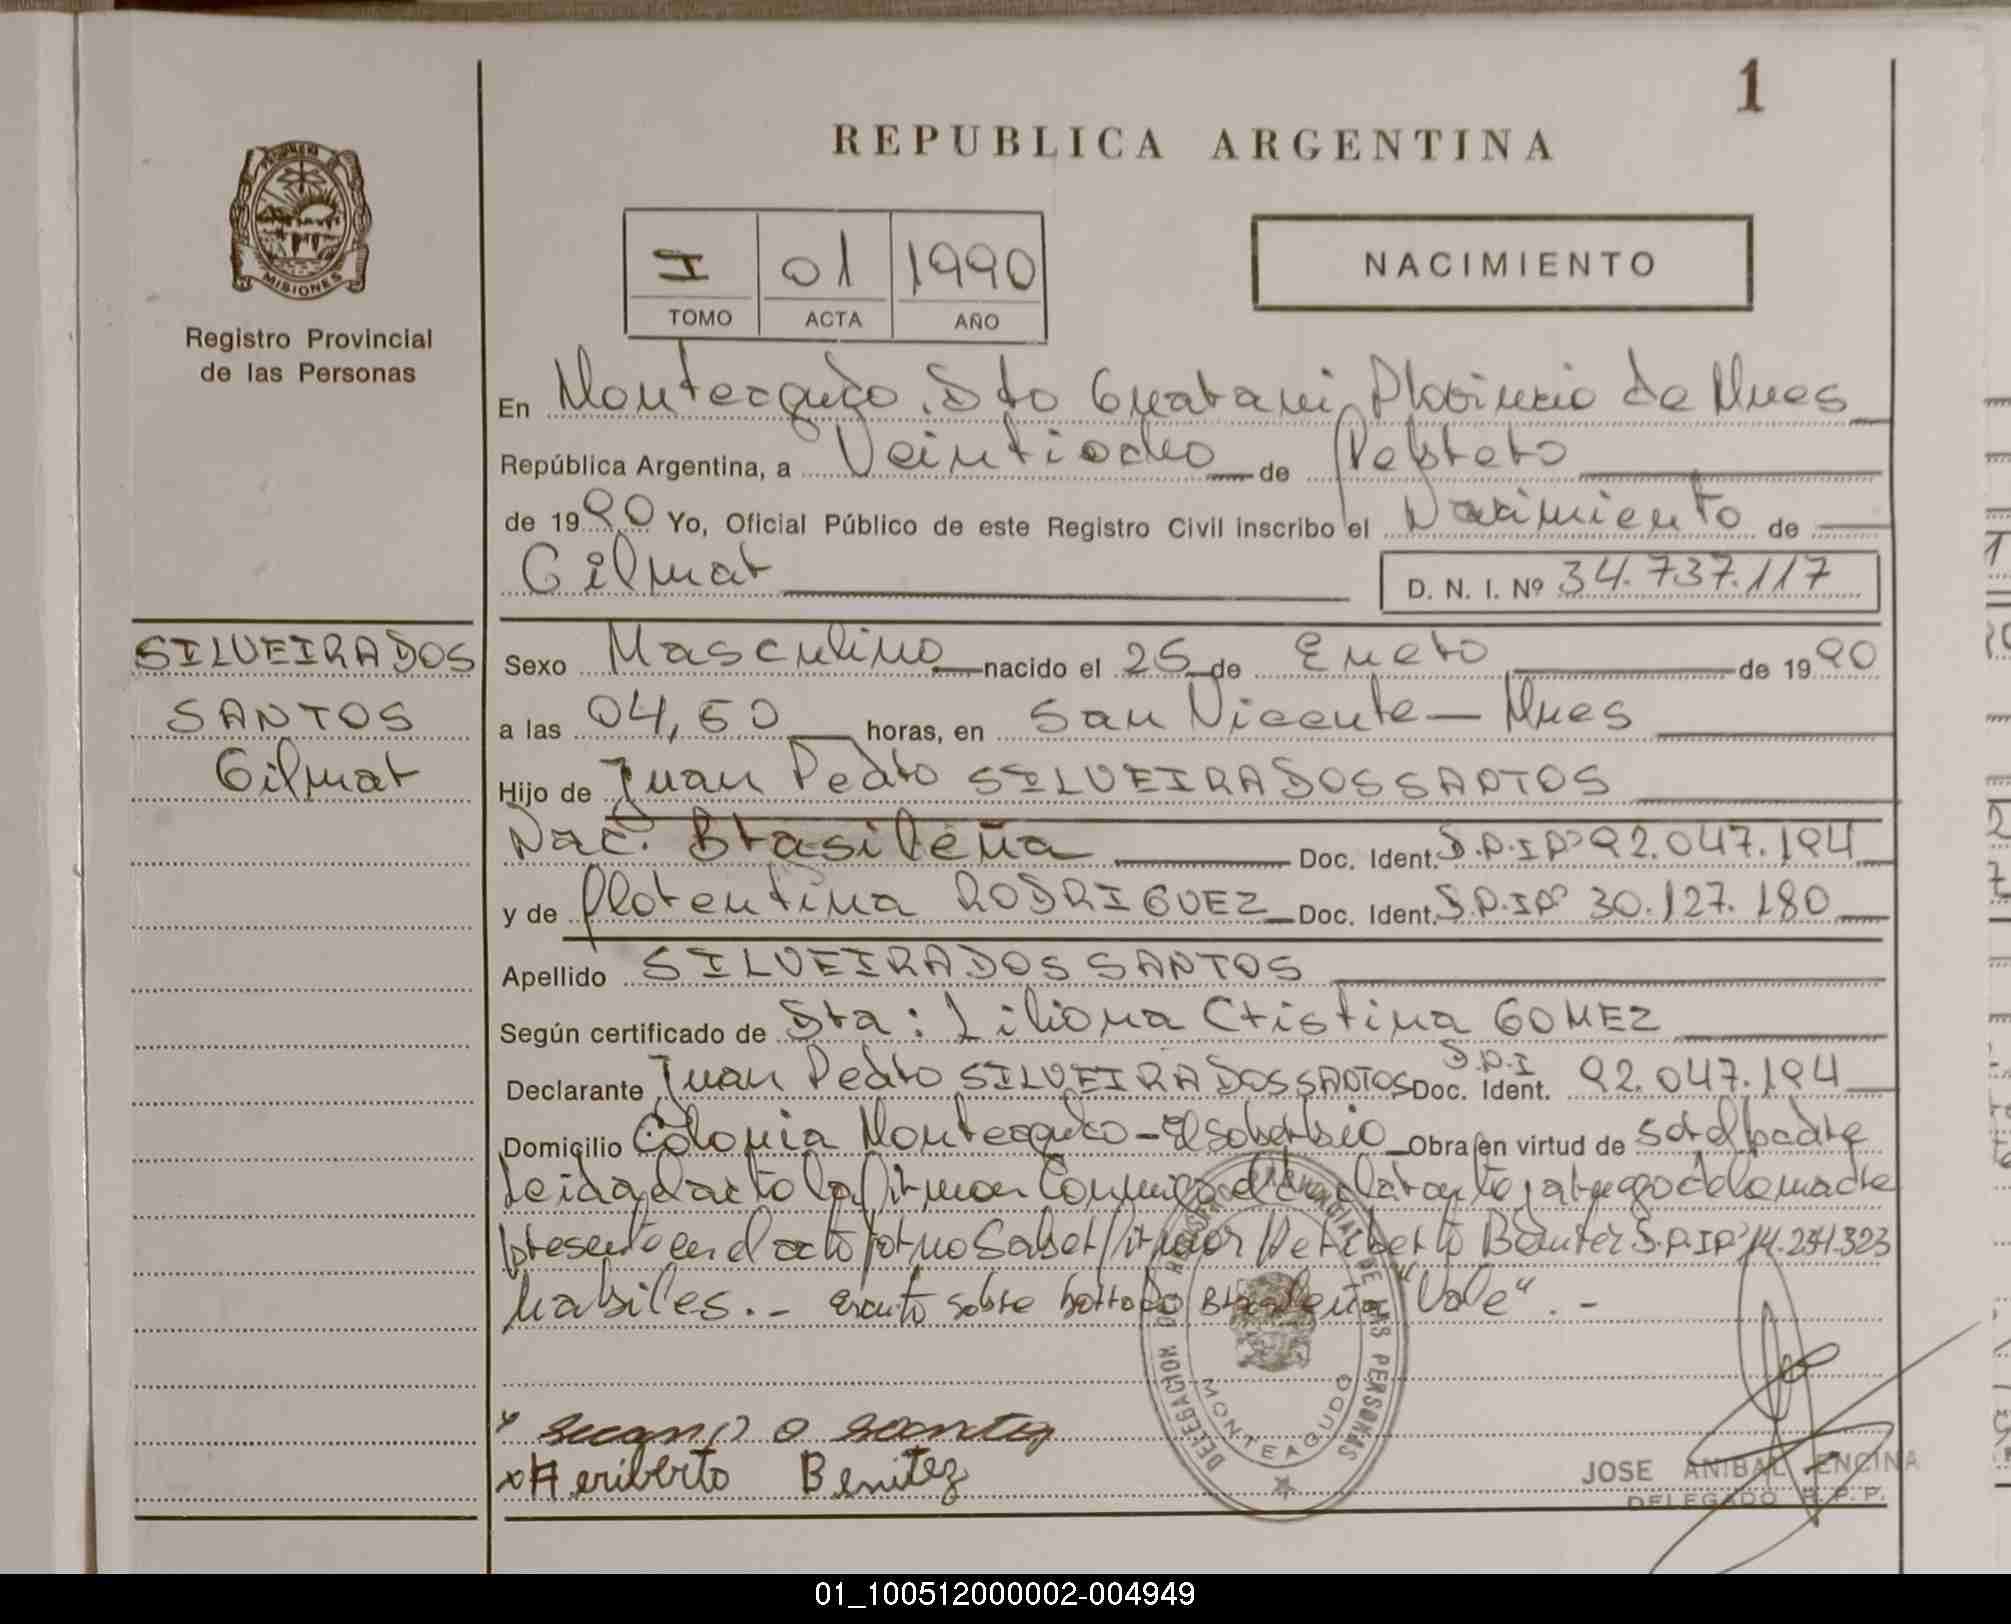 1
REPUBLICA ARGENTINA
MISIONES
Registro Provincial
de las Personas
I 01 1990
TOMO ACTA AÑO
NACIMIENTO
En Monteagudo, Dto Guarani, Provincia de Mnes
República Argentina, a Veintiocho de Febrero
de 1990 Yo, Oficial Público de este Registro Civil inscribo el Nacimiento de
Gilmar D. N. I. Nº 34.737.117
SILVEIRA DOS
SANTOS
Gilmar
Sexo Masculino nacido el 25 de Enero de 1990
a las 04,50 horas, en San Vicente - Mnes
Hijo de Juan Pedro SILVEIRA DOS SANTOS
Nac. Brasileña Doc. Ident. D.N.I Nº 92.047.194
y de Florentina RODRIGUEZ Doc. Ident. D.N.I Nº 30.127.180
Apellido SILVEIRA DOS SANTOS
Según certificado de Dra: Liliana Cristina GOMEZ
Declarante Juan Pedro SILVEIRA DOS SANTOS Doc. Ident. D.N.I 92.047.194
Domicilio Colonia Monteagudo - El Soberbio Obra en virtud de ser el padre
Leida el acto la firman Conmigo el declarante, a ruego de la madre
presente en el acto por no Saber firmar Heriberto Benitez D.N.I Nº 14.254.323
habiles. - escrito sobre borrado Brasileña "Vale". -
x Heriberto Benitez
DELEGACION
DE LAS PERSONAS
MONTEAGUDO
JOSE ANIBAL ENCINA
DELEGADO R. P. P.
01_100512000002-004949